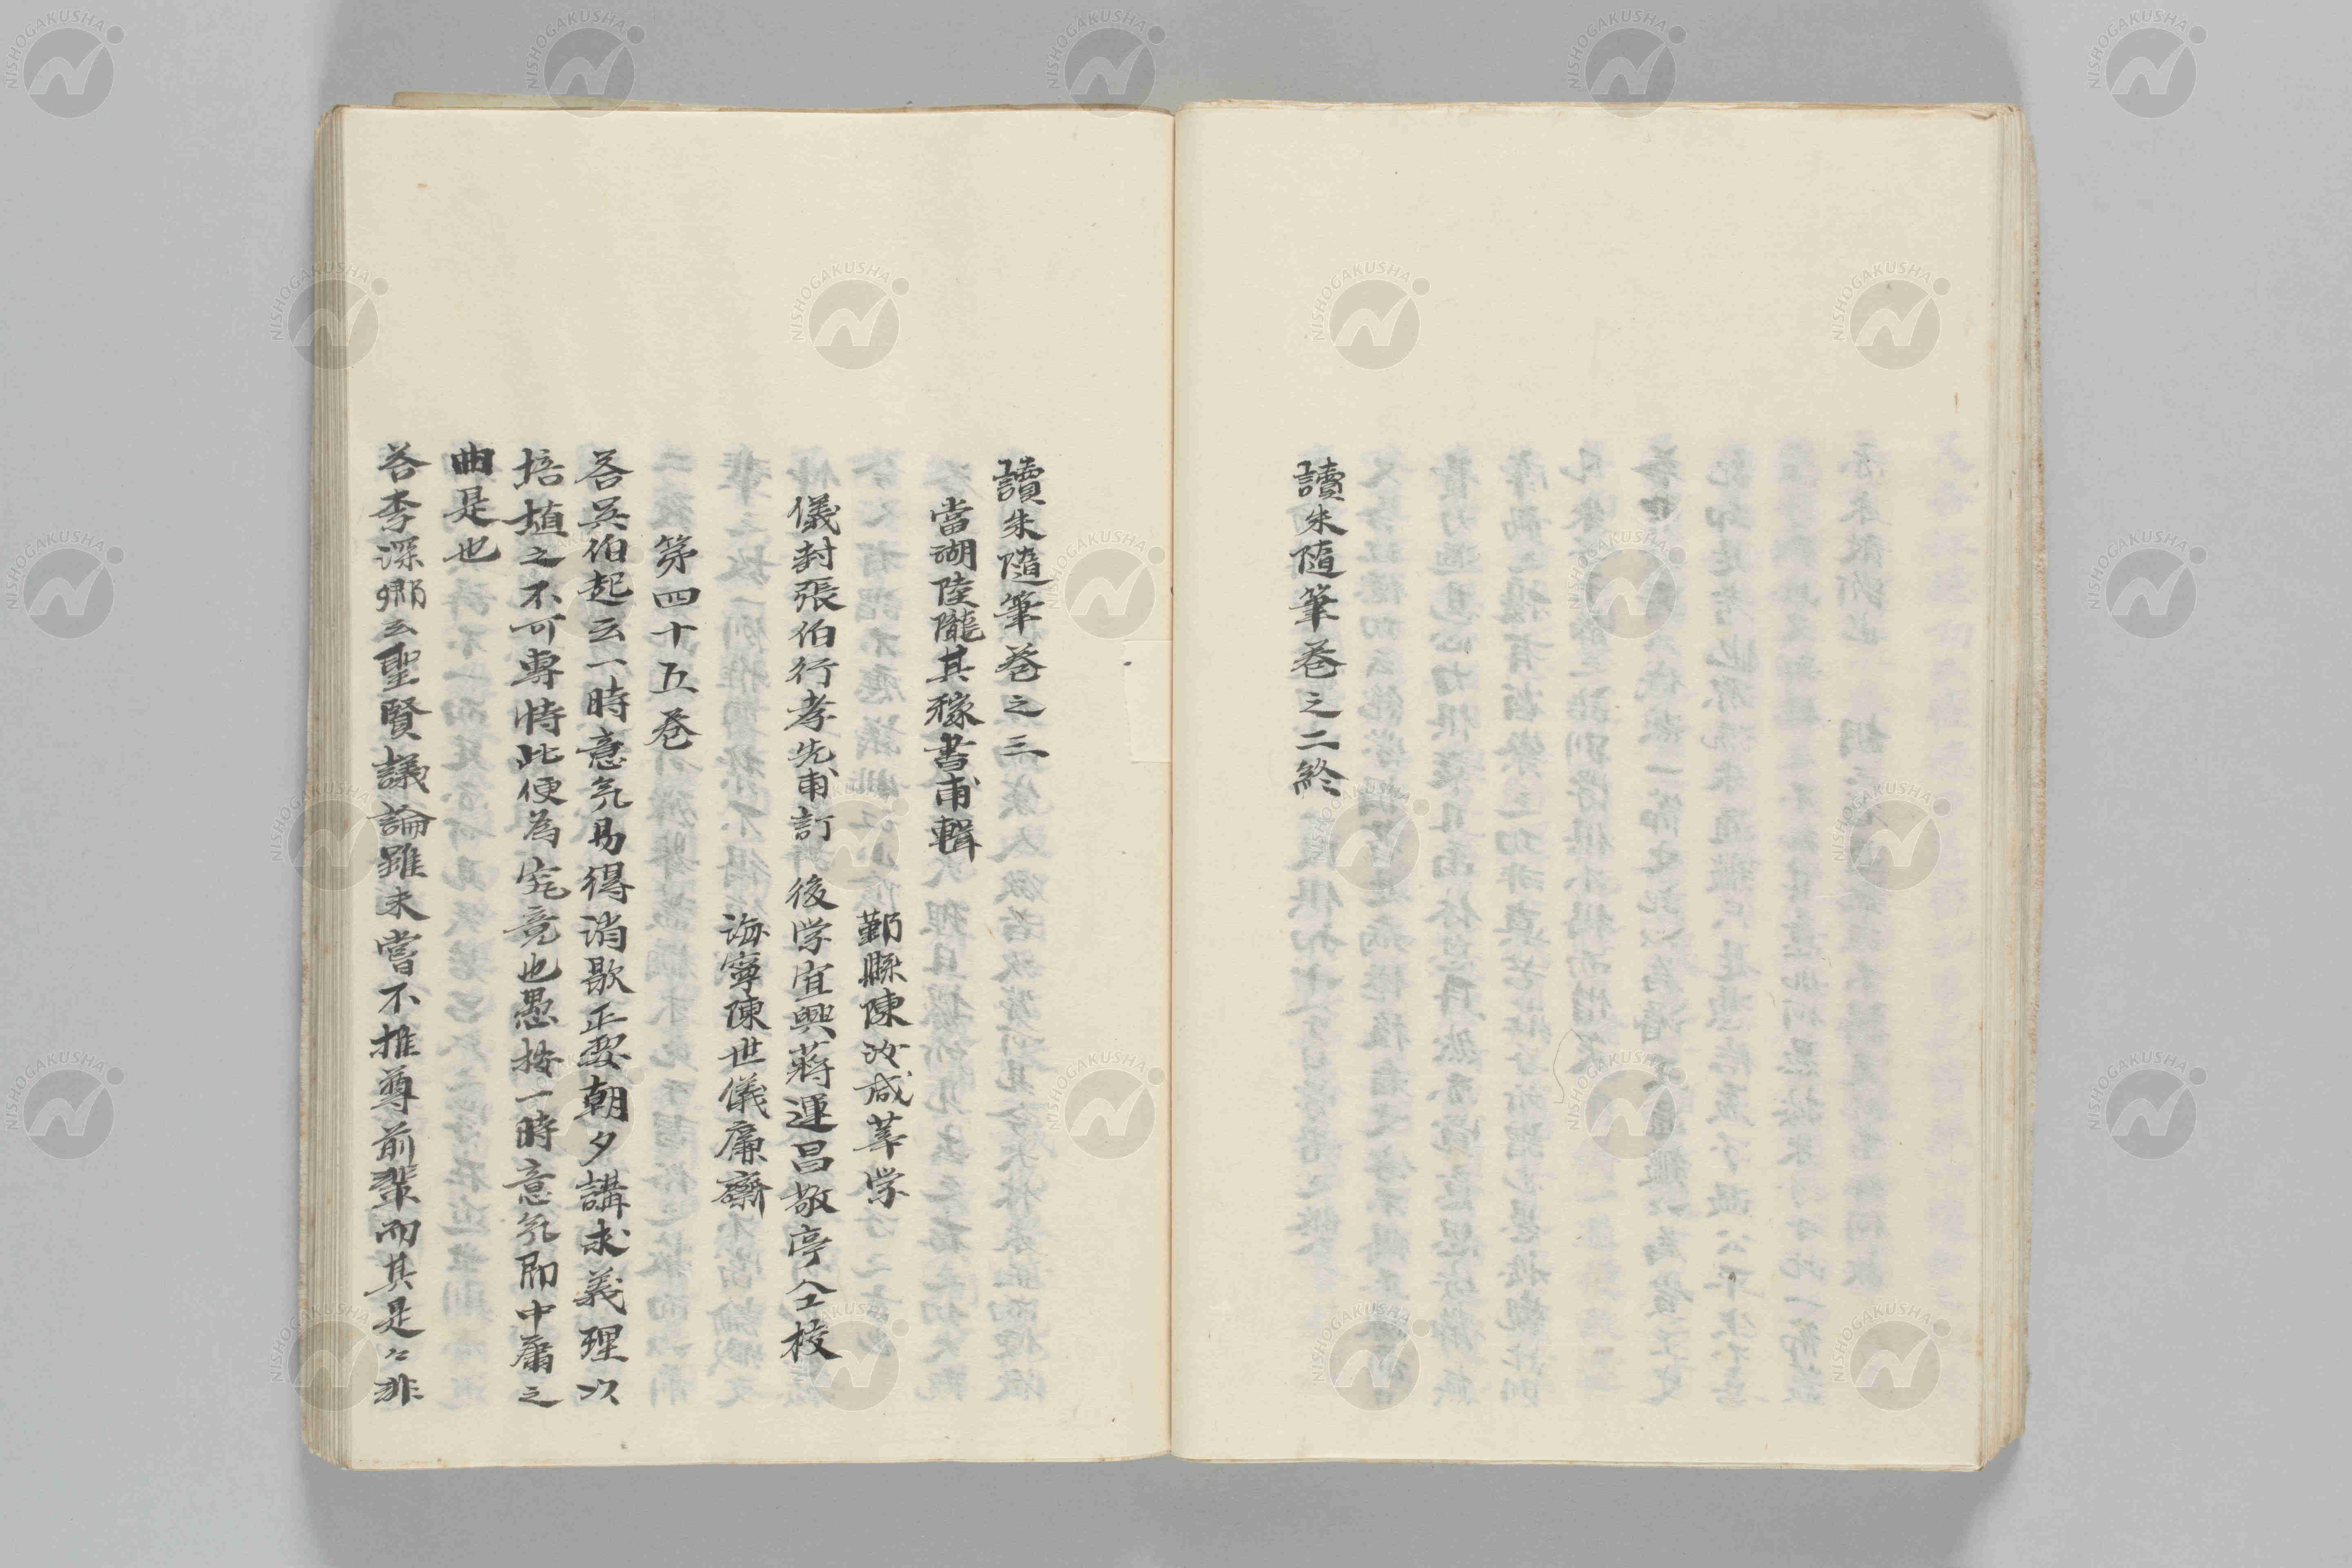 讀朱隨筆卷之二終
讀朱隨筆卷之三
當湖陸隴其稼書甫輯
鄞縣陳汝咸莘学
儀封張伯行孝先甫訂 後学宜興蔣運昌敬亭仝校
海寧陳世儀廉齋
第四十五卷
荅呉伯起云一時意気易得消歇正要朝夕講求義理以
培埴之不可專恃此便為究竟也愚按一時意気即中庸之
曲是也
荅李深卿云聖賢議論雖未嘗不推尊前輩而其是〻非
NISHOGAKUSHA